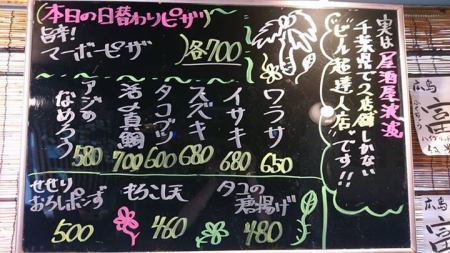 本日の日替わりピザ
旨辛!
マーボーピザ
各700
実は居酒屋浪流
千葉県で2店舗しかない
ビール超達人店
です!!
ワラサ
650
イサキ
680
スズキ
680
タコブツ
600
活〆真鯛
700
アジの
なめろう
580
せせり
おろしポンず
500
もろこし天
460
タコの
唐揚げ
480
広島
富
広島
富